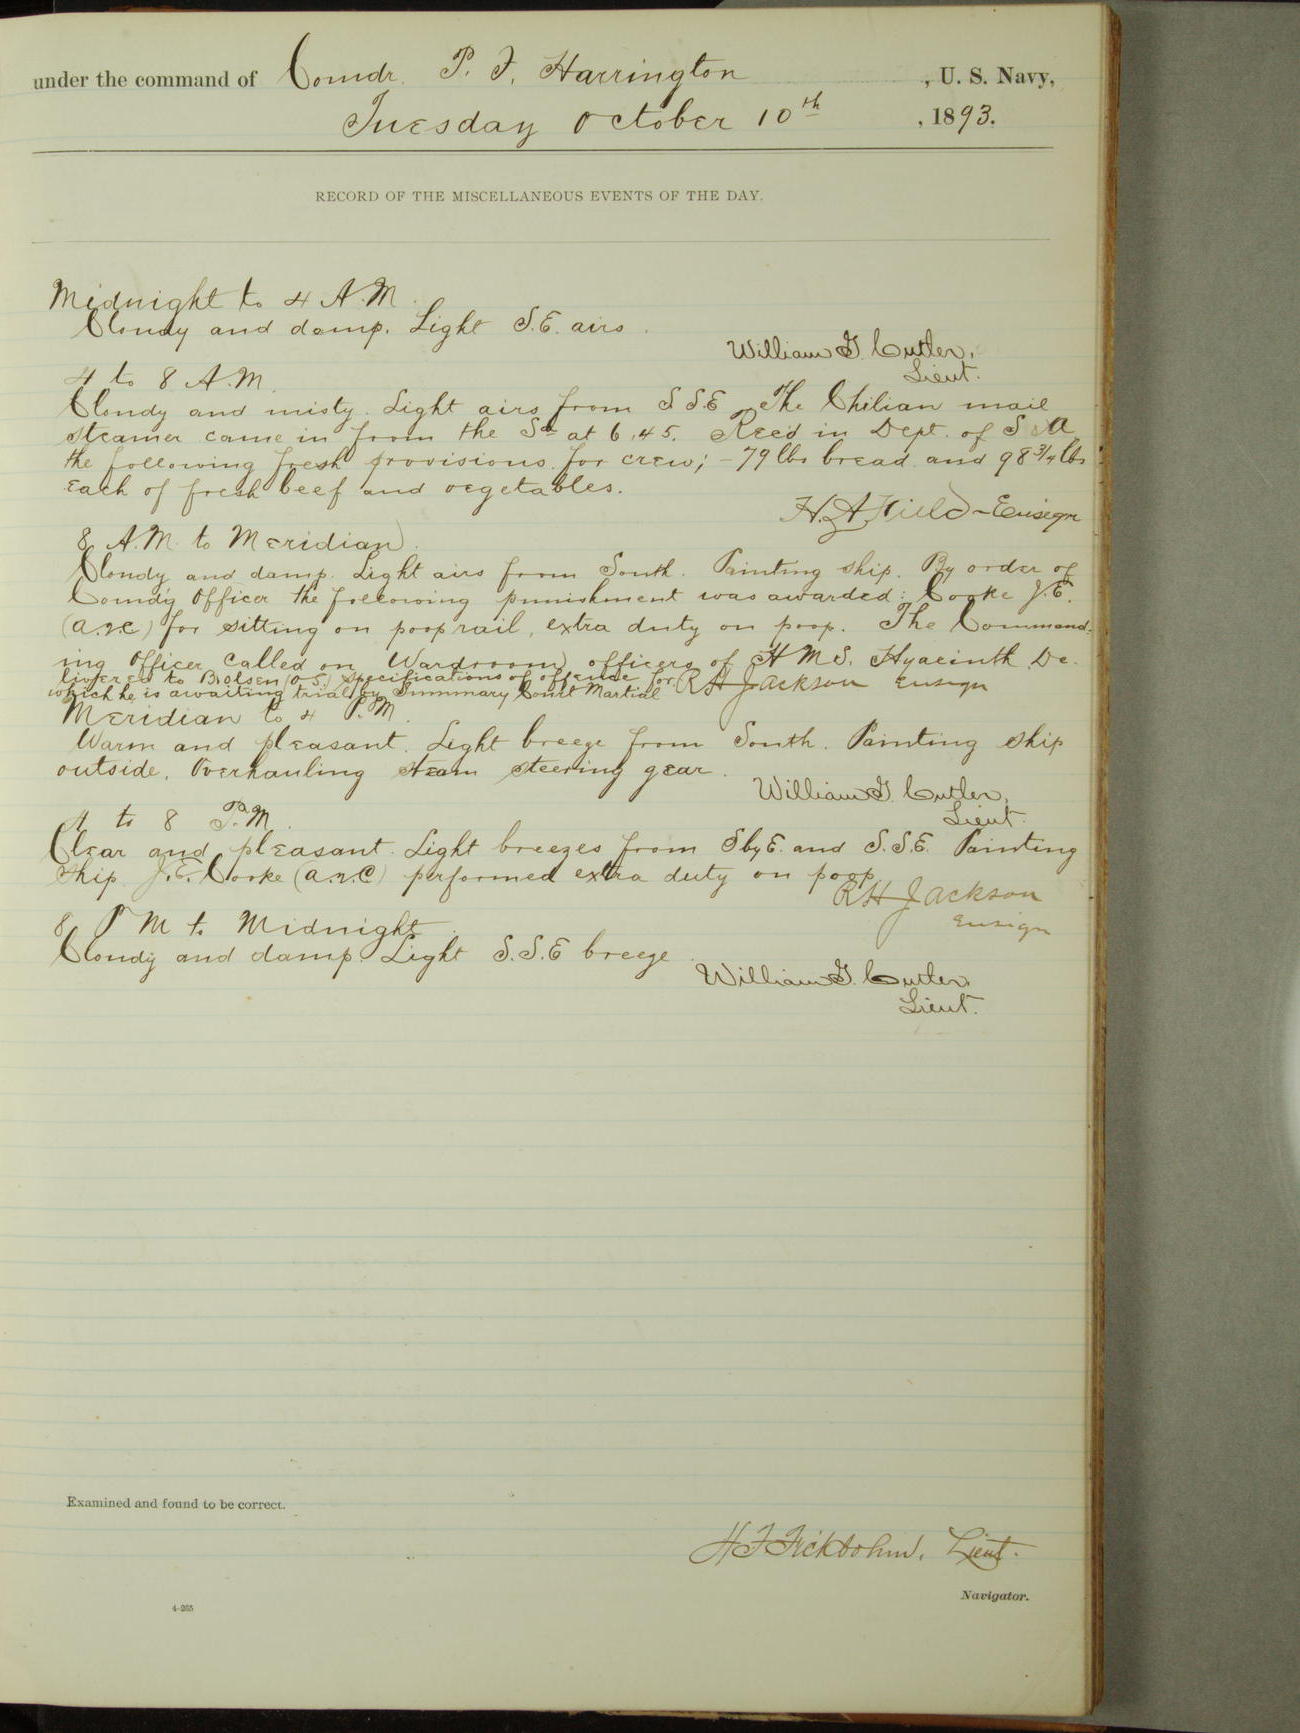 under the command of Comdr. P. F. Harrington , U. S. Navy,
Tuesday October 10th , 1893.
RECORD OF THE MISCELLANEOUS EVENTS OF THE DAY.
Midnight to 4 A.M.
Cloudy and damp. Light S.E. airs.
William G. Cutler,
Lieut.
4 to 8 A.M.
Cloudy and misty. Light airs from S S.E. The Chilian mail
steamer came in from the Sd at 6.45. Rec'd in Dept. of S & A
the following fresh provisions for crew; - 79 lbs bread and 98 3/4 lbs
each of fresh beef and vegetables.
H. A. Field - Ensign
8 A.M. to Meridian.
Cloudy and damp. Light airs from South. Painting ship. By order of
Comdg Officer the following punishment was awarded: Cooke J.E.
(a.2.c) for sitting on poop rail, extra duty on poop. The Command-
ing Officer called on Wardroom officers of H M S. Hyacinth De-
livered to Bolsen (O.S.) specifications of offense for
which he is awaiting trial by Summary Court Martial R H Jackson Ensign
Meridian to 4 P.M.
Warm and pleasant. Light breeze from South. Painting ship
outside. Overhauling steam steering gear.
William G. Cutler,
Lieut.
4 to 8 P.M.
Clear and pleasant. Light breezes from S by E. and S.S.E. Painting
ship. J.E. Cooke (a.2.c) performed extra duty on poop.
R H Jackson
Ensign
8 P M to Midnight.
Cloudy and damp. Light S.S.E breeze.
William G. Cutler,
Lieut.
Examined and found to be correct.
H F Fickbohm, Lieut.
Navigator.
4-265